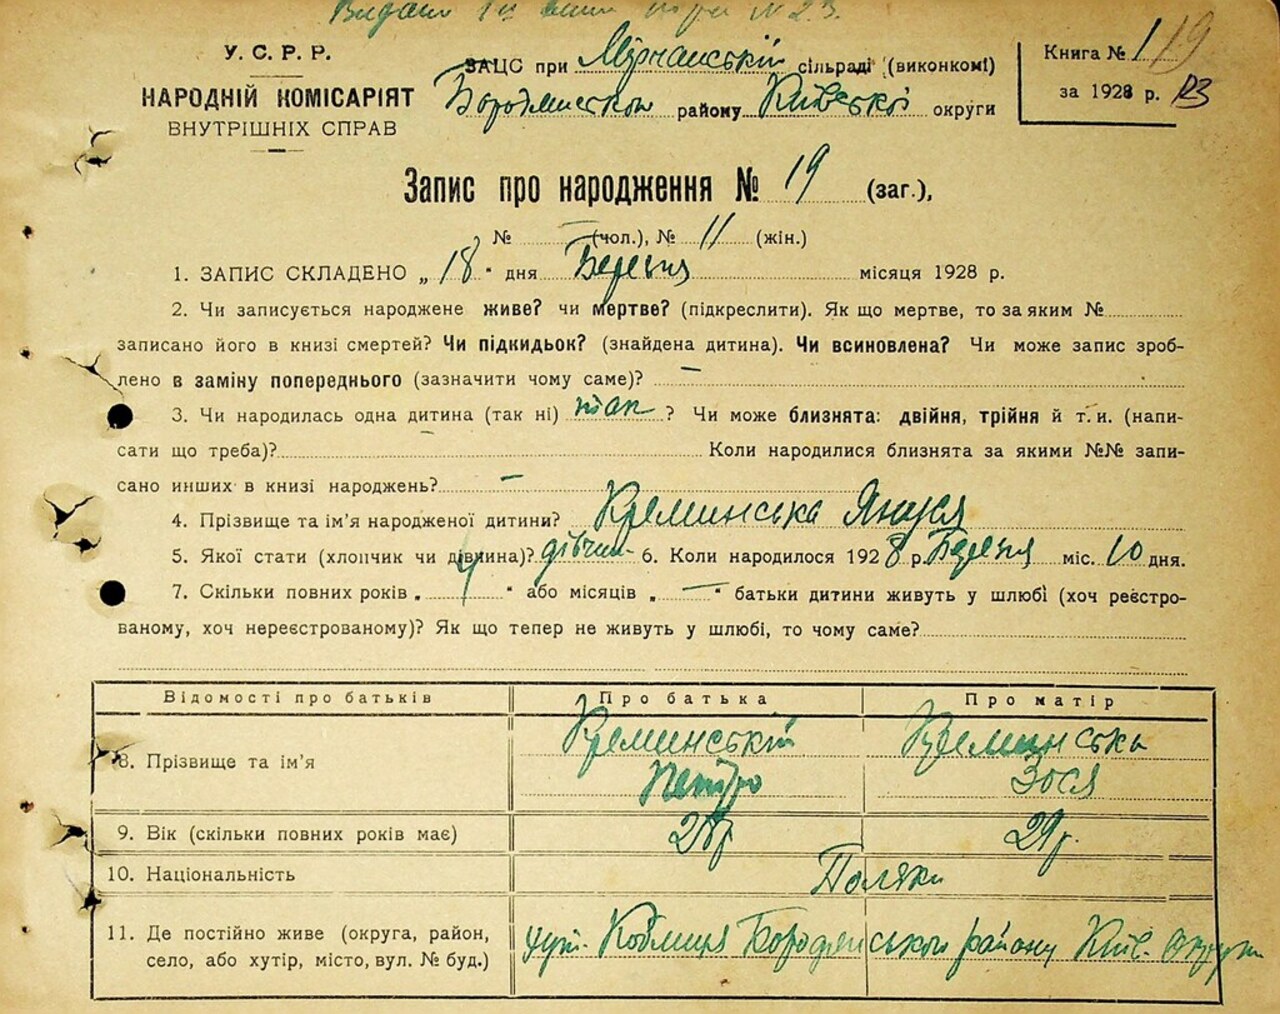 Видано
У. С. Р. Р.
НАРОДНІЙ КОМІСАРІЯТ
ВНУТРІШНІХ СПРАВ
ЗАЦС при Мірчанській сільраді (виконкомі)
району Київської округи
Книга № 1 19
за 1928 р.
Запис про народження № 19 (заг.),
№ — (чол.), № 11 (жін.)
1. ЗАПИС СКЛАДЕНО „ 18 “ дня Березня місяця 1928 р.
2. Чи записується народжене живе? чи мертве? (підкреслити). Як що мертве, то за яким №
записано його в книзі смертей? Чи підкидьок? (знайдена дитина). Чи всиновлена? Чи може запис зроб-
лено в заміну попереднього (зазначити чому саме)? —
3. Чи народилась одна дитина (так ні) так ? Чи може близнята: двійня, трійня й т. и. (напи-
сати що треба)? Коли народилися близнята за якими №№ запи-
сано инших в книзі народжень? —
4. Прізвище та ім’я народженої дитини? Креминська Януся
5. Якої стати (хлопчик чи дівчина)? дівчин 6. Коли народилося 1928 р. Березня міс. 10 дня.
7. Скільки повних років „ 4 “ або місяців „ — “ батьки дитини живуть у шлюбі (хоч реєстро-
ваному, хоч нереєстрованому)? Як що тепер не живуть у шлюбі, то чому саме?
Відомості про батьків Про батька Про матір
8. Прізвище та ім’я Креминській Креминська
Петро Зося
9. Вік (скільки повних років має) 28 р 29 р.
10. Національність Поляки
11. Де постійно живе (округа, район,
село, або хутір, місто, вул. № буд.) хут. Коблиця Бородянського району Київ. округи